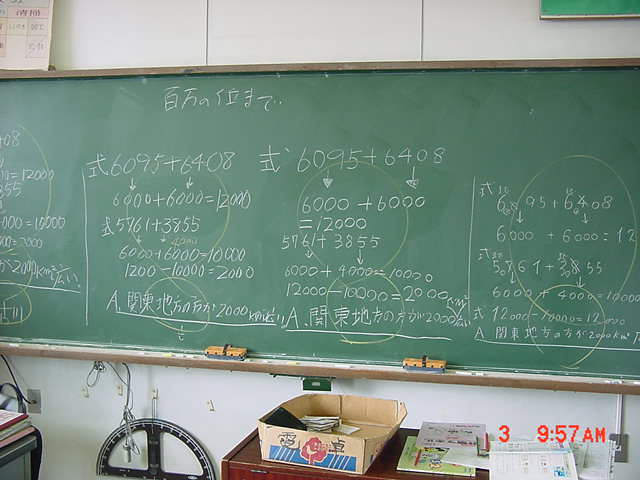 百万の位まで..
+08
=12000
3855
000=10000
000=2000
が2000km²広い.
式6095+6408
6000+6000=12000
式5761+3855
4000
6000+6000=10000
1200-10000=2000
A.関東地方の方が2000km²広い.
式 6095+6408
6000+6000
=12000
5761+3855
6000+4000=10000
12000-10000=2000
A.関東地方の方が2000km²広い
式 6095+6408
6000+6000=12
式 5761+3855
6000 4000=10000
式 12000-10000=12000
A.関東地方の方が2000km²広
卓
3 9:57AM